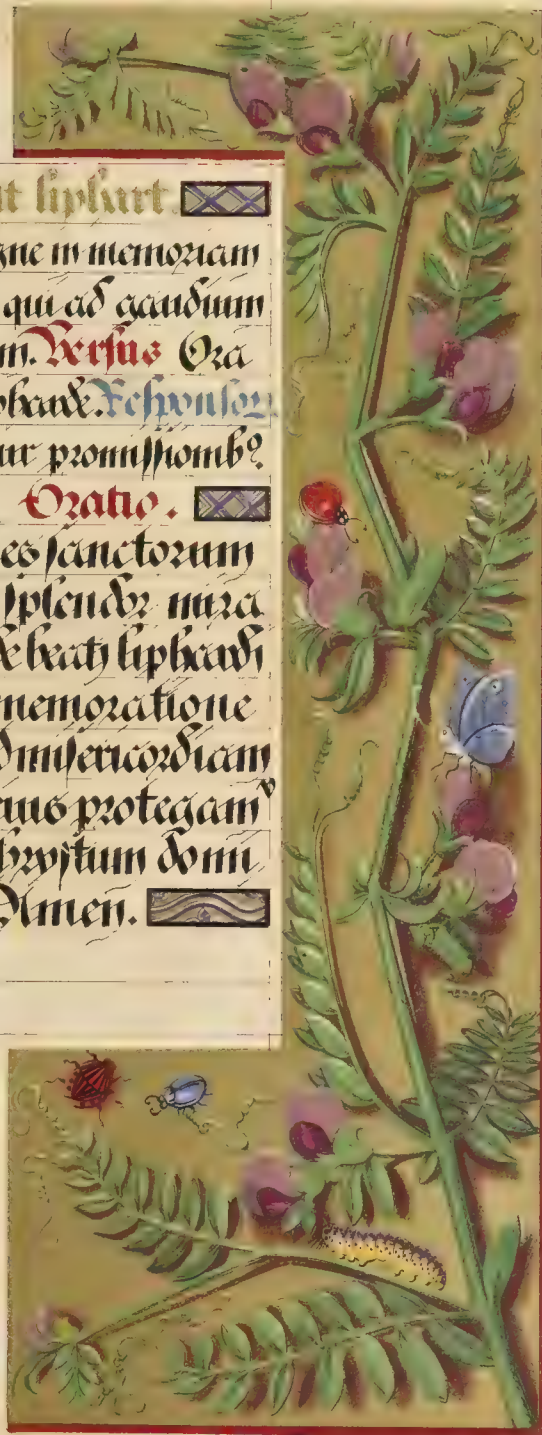 t liphart
gne in memoriam
qui ad gaudium
m. Versus Ora
pharde. Responsor
ur promissionib9
Oratio.
es sanctorum
splendor mira
beati liphardi
memoratione
misericordiam
eius protegam
domi
Amen.